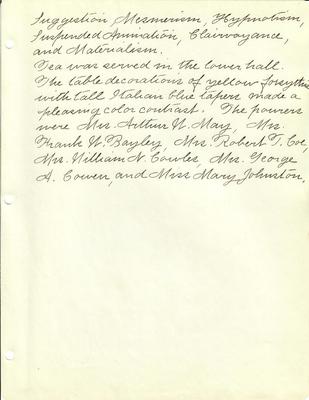 Suggestion Mesmerism, Hypnotism,
Suspended Animation, Clairvoyance,
and Materialism.
Tea was served in the lower hall.
The table decorations of yellow forsythia
with tall Italian blue tapers made a
pleasing color contrast. The pourers
were Mrs. Arthur W. May, Mrs.
Frank W. Bayley, Mrs. Robert T. Coe,
Mrs. William N. Cowles, Mrs. George
A. Cowen, and Miss Mary Johnston.